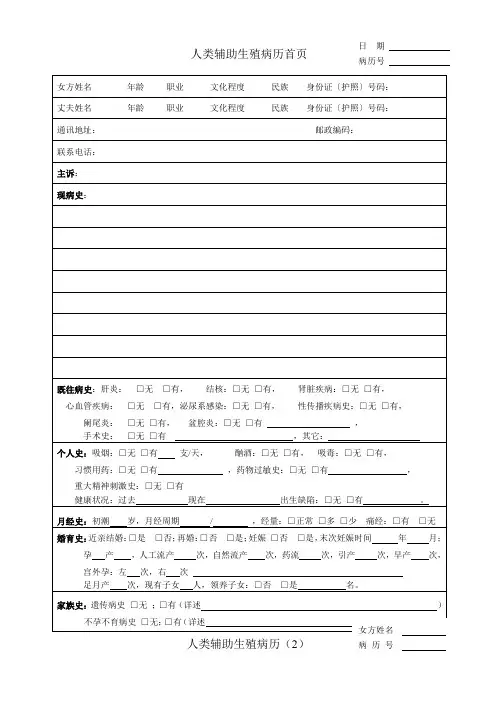 人类辅助生殖病历首页
日 期
病历号
女方姓名 年龄 职业 文化程度 民族 身份证〔护照〕号码:
丈夫姓名 年龄 职业 文化程度 民族 身份证〔护照〕号码:
通讯地址: 邮政编码:
联系电话:
主诉:
现病史:
既往病史: 肝炎: □无 □有, 结核:□无 □有, 肾脏疾病:□无 □有,
心血管疾病: □无 □有,泌尿系感染:□无 □有, 性传播疾病史:□无 □有,
阑尾炎: □无 □有, 盆腔炎:□无 □有 ,
手术史: □无 □有 ,其它:
个人史: 吸烟:□无 □有 支/天, 酗酒:□无 □有, 吸毒:□无 □有,
习惯用药:□无 □有 ,药物过敏史:□无 □有 ,
重大精神刺激史:□无 □有
健康状况:过去 现在 出生缺陷:□无 □有 。
月经史: 初潮 岁,月经周期 / ,经量:□正常 □多 □少 痛经:□有 □无
婚育史:近亲结婚:□是 □否;再婚:□否 □是;妊娠 □否 □是,末次妊娠时间 年 月;
孕 产 ,人工流产 次,自然流产 次,药流 次,引产 次,早产 次,
宫外孕:左 次,右 次
足月产 次,现有子女 人,领养子女:□否 □是 名。
家族史: 遗传病史 □无 ;□有(详述 )
不孕不育病史 □无;□有(详述
女方姓名
人类辅助生殖病历(2)
病 历 号